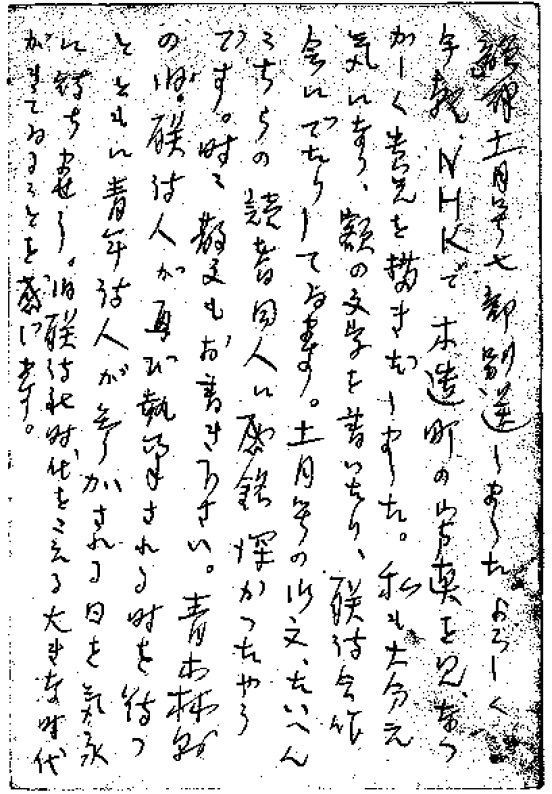 詩研十一月号七部別送しましたよろしく
今朝、NHKで木造町の写真を見、なつ
かしく貴兄を描き出しました。私も大分元
気になり、額の文字を書いたり、联詩会作
会にでたりしてゐます。十一月号の御文、たいへん
こちらの読者同人に感銘深かつたやう
です。時々散文もお書き下さい。青木林
の旧联詩人が再び執筆される時を待つ
とともに青年詩人が争かされる日を気永
に待ちませう。旧联詩於時代をこえる大きな時代
がきてゐることを感じます。